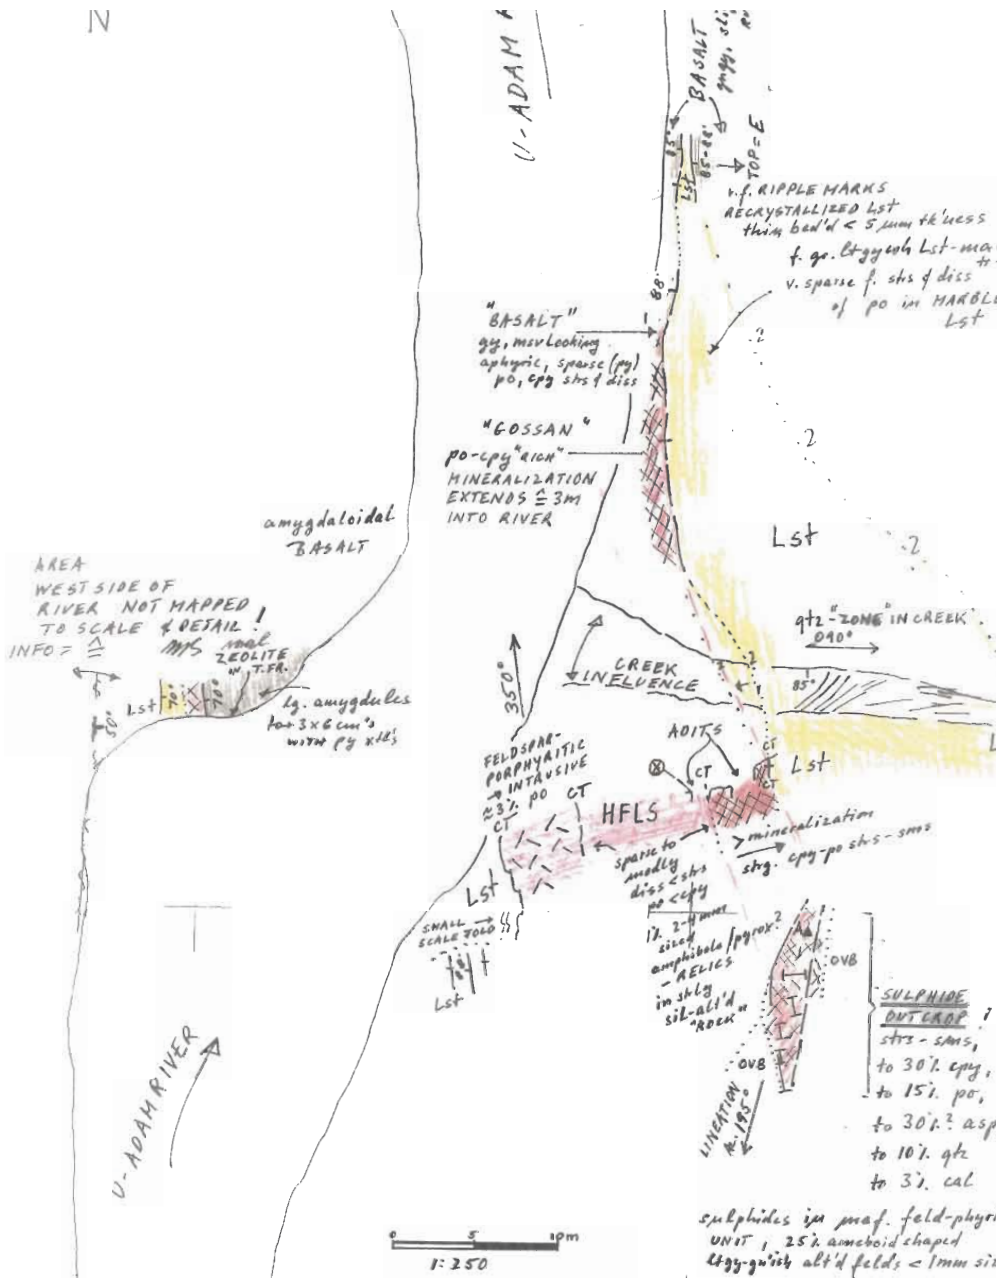 N
U-ADAM
BASALT
85°
85-88°
TOP=E
Lst
v.f. RIPPLE MARKS
RECRYSTALLIZED Lst
thin bed'd < 5 mm tk'ness
f. gr. ltgyish Lst-ma
v. sparse f. strs & diss
of po in MARBLE
Lst
88°
"BASALT"
gy, msv looking
aphyric, sparse (py)
po, cpy strs & diss
"GOSSAN"
po-cpy "RICH"
MINERALIZATION
EXTENDS ≙ 3m
INTO RIVER
2
2
2
Lst
amygdaloidal
BASALT
AREA
WEST SIDE OF
RIVER NOT MAPPED
TO SCALE & DETAIL!
INFO = ≙
ZEOLITE
IN T.FR.
Lst
70°
70°
50°
lg. amygdules
to 3x6 cm's
with py xtl's
350°
CREEK
INFLUENCE
qtz "ZONE" IN CREEK
090°
85°
ADITS
CT
CT
CT
Lst
FELDSPAR-
PORPHYRITIC
→ INTRUSIVE
≈3% po
CT
CT
HFLS
> mineralization
strg. cpy-po strs-sms
sparse to
modly
diss < strs
po < cpy
1% 2-4mm
sized
amphibole/pyrox?
- RELICS
in strly
sil-alt'd
"ROCK"
Lst
SMALL →
SCALE FOLD
88°
Lst
U-ADAM RIVER
OVB
OVB
LINEATION
Az. 195°
SULPHIDE
OUTCROP
strs-sms,
to 30% cpy,
to 15% po,
to 30%? asp
to 10% qtz
to 3% cal
sulphides in maf. feld-phyri
UNIT, 25% ameboid shaped
ltgy-gnish alt'd felds < 1mm siz
0 5 10m
1:250